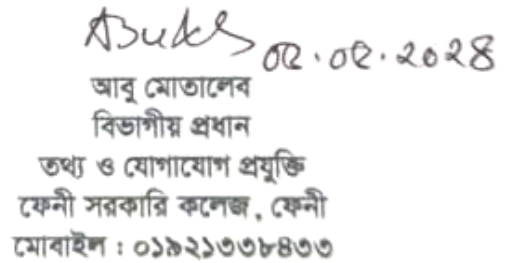 ০৫.০৫.২০২৪
আবু মোতালেব
বিভাগীয় প্রধান
তথ্য ও যোগাযোগ প্রযুক্তি
ফেনী সরকারি কলেজ, ফেনী
মোবাইল : ০১৯২১৩৩৮৪৩৩